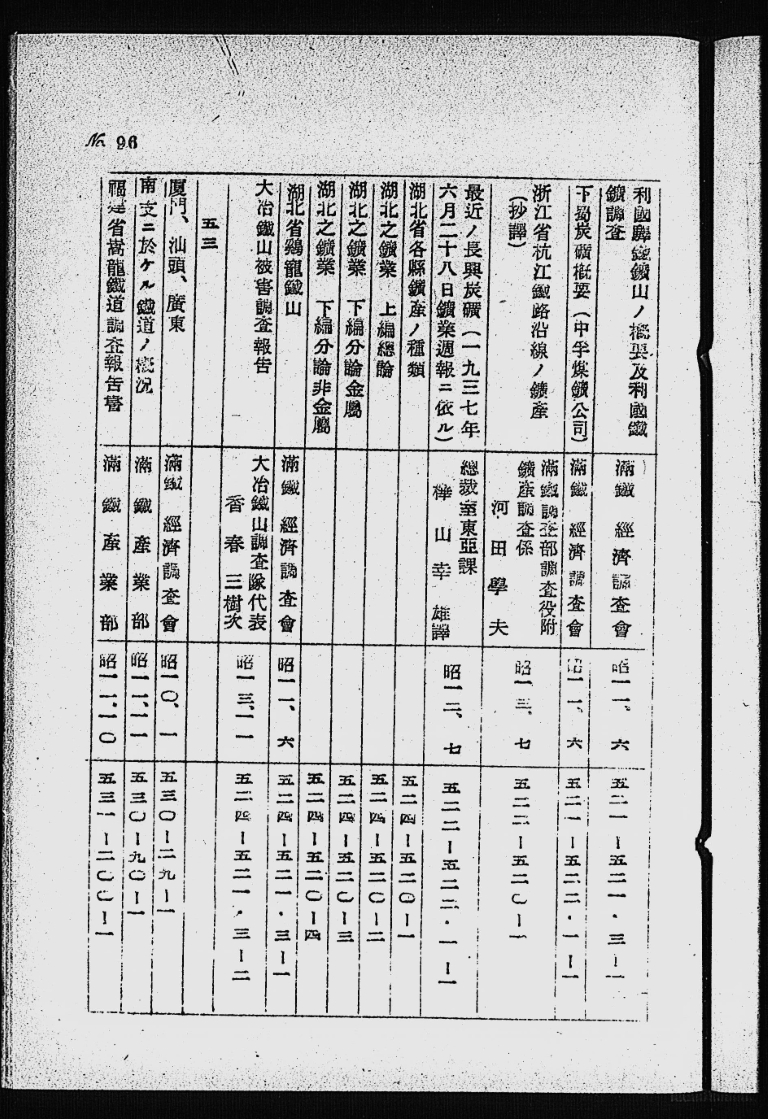 No. 96
利國驛鐵鑛山ノ概要及利國鐵
鑛調査
滿鐵 經濟調査會
昭一一、六
五二一ー五二一・三ー一
下蜀炭礦概要(中孚煤鑛公司)
滿鐵 經濟調査會
昭一一、六
五二一ー五二二・一ー一
浙江省杭江鐵路沿線ノ鑛産
(抄譯)
滿鐵調査部調査役附
鑛産調査係
河田學夫
昭一三、七
五二二ー五二〇ー一
最近ノ長興炭礦(一九三七年
六月二十八日鑛業週報ニ依ル)
總裁室東亞課
樺山幸雄譯
昭一二、七
五二二ー五二二・一ー一
湖北省各縣鑛産ノ種類
五二四ー五二〇ー一
湖北之鑛業 上編總論
五二四ー五二〇ー二
湖北之鑛業 下編分論金屬
五二四ー五二〇ー三
湖北之鑛業 下編分論非金屬
五二四ー五二〇ー四
湖北省鷄龍鐵山
滿鐵 經濟調査會
昭一一、六
五二四ー五二一・三ー一
大冶鐵山被害調査報告
大冶鐵山調査隊代表
香春三樹次
昭一三、一一
五二四ー五二一・三ー二
五三
廈門、汕頭、廣東
滿鐵 經濟調査會
昭一〇、一
五三〇ー二九ー一
南支ニ於ケル鐵道ノ概況
滿鐵産業部
昭一一、一一
五三〇ー九〇ー一
福建省嵩龍鐵道調査報告書
滿鐵産業部
昭一一、一〇
五三一ー二〇〇ー一